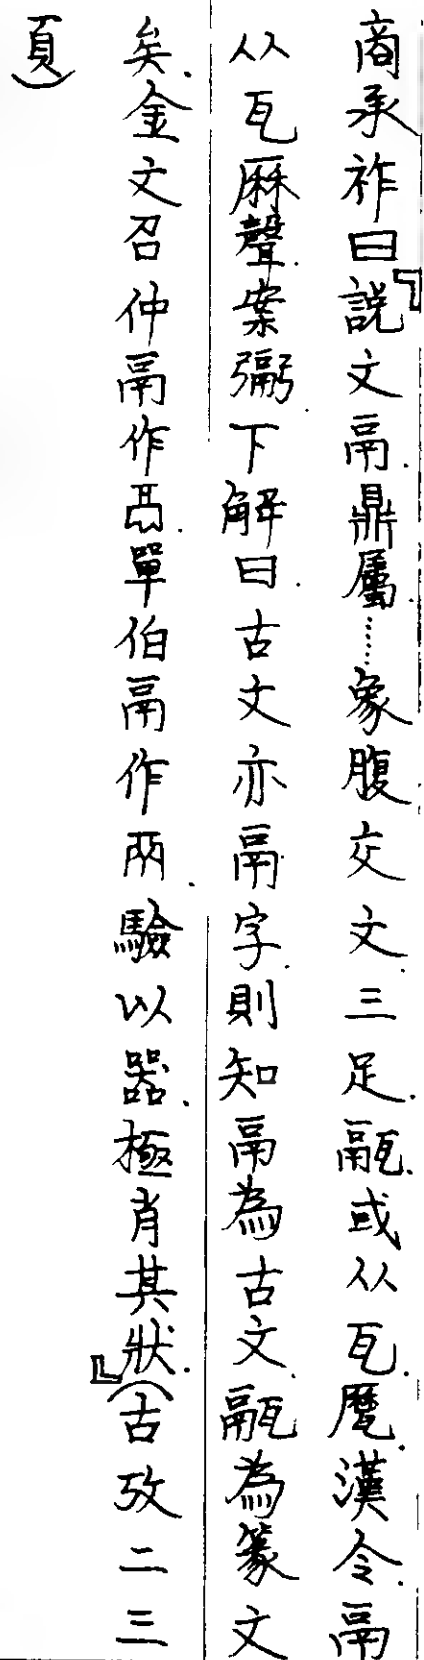 商承祚曰『說文鬲.鼎屬.……象腹交文.三足.䰛.或从瓦.㽁.漢令鬲
从瓦厤聲.案䰜.下解曰.古文亦鬲字.則知鬲為古文.䰛為篆文
矣.金文召仲鬲作.單伯鬲作.驗以器.極肖其狀.』(古攷二三
頁)